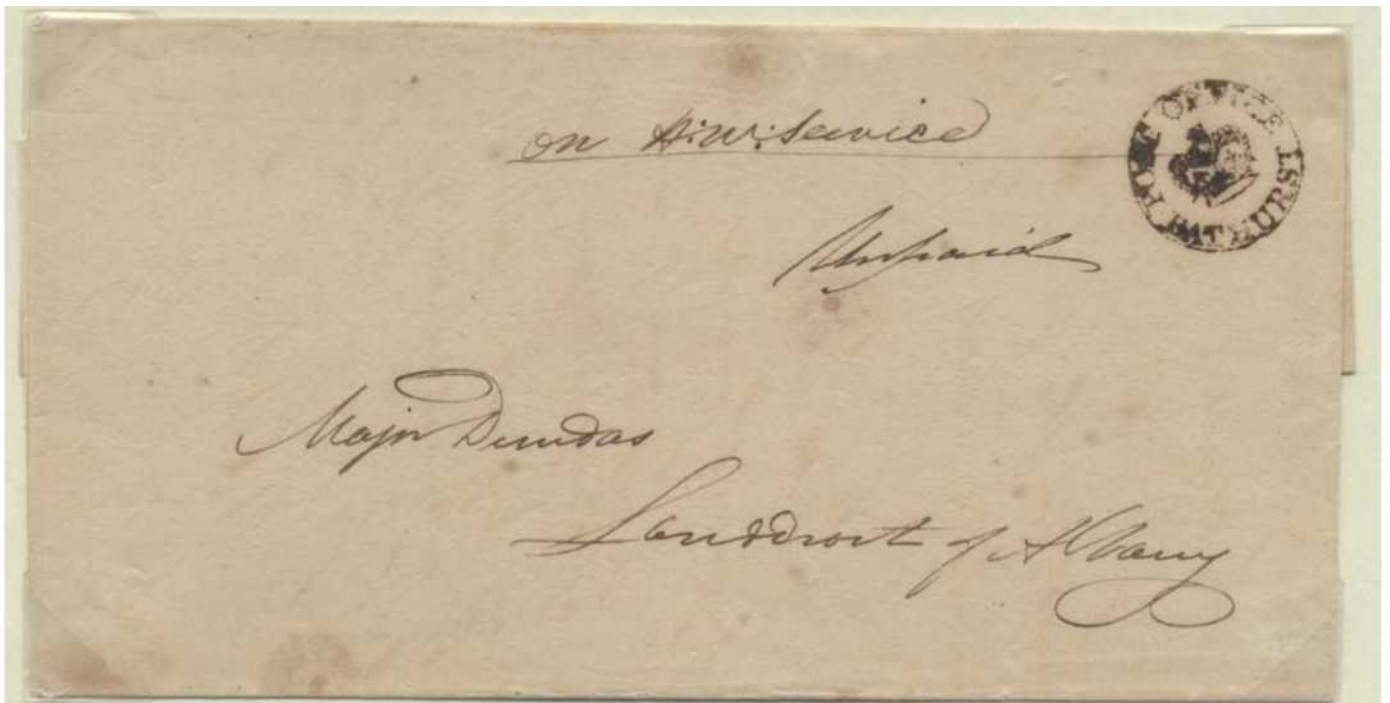 on H: M: Service
POST OFFICE BATHURST
Unpaid
Major Dundas
Landdrost of Albany